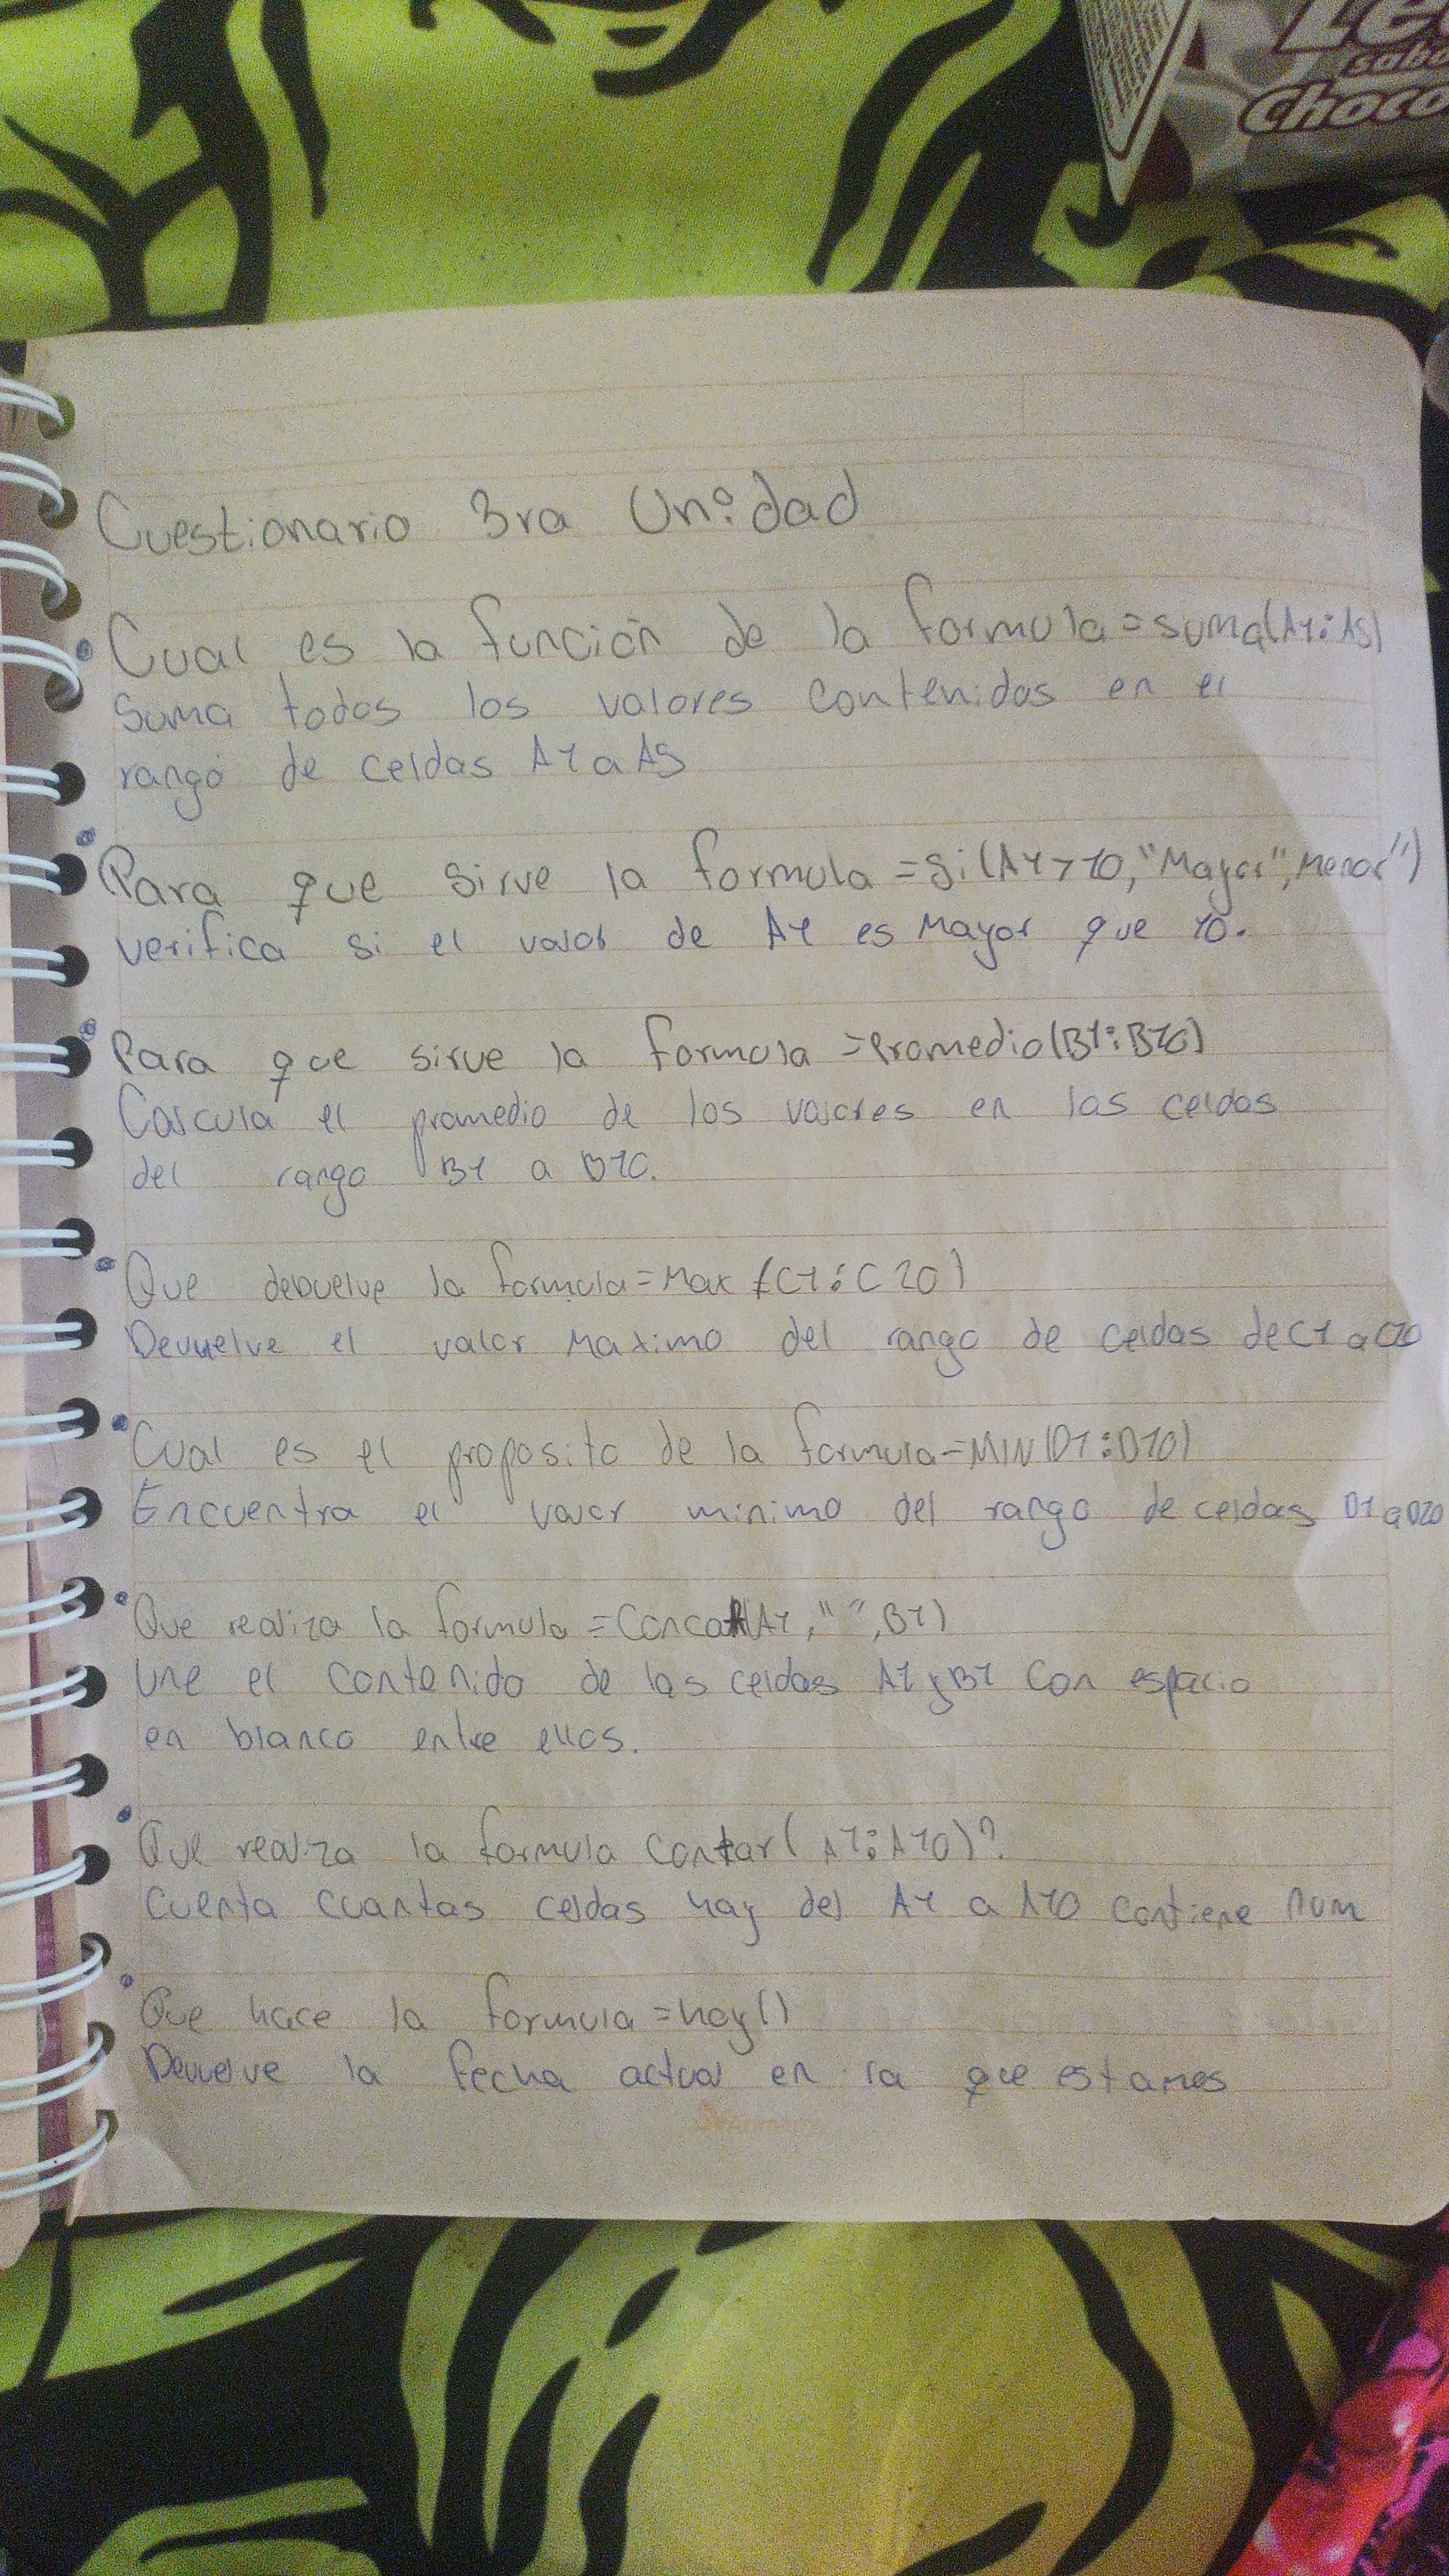 Le
sabo
Choco
Cuestionario 3ra Unidad
Cual es la función de la formula=suma(A1:A5)
Suma todos los valores contenidos en el
rango de celdas A1 a A5
Para que sirve la formula =Si(A1>10,"Mayor",Menor")
verifica si el valor de A1 es Mayor que 10.
Para que sirve la formula =Promedio(B1:B10)
Calcula el promedio de los valores en las celdas
del rango B1 a B10.
Que devuelve la formula=Max (C1:C20)
Devuelve el valor Maximo del rango de celdas de C1 a C20
Cual es el proposito de la formula=MIN(D1:D10)
Encuentra el valor minimo del rango de celdas D1 a D20
Que realiza la formula =Concat(A1," ",B1)
Une el contenido de las celdas A1 y B1 con espacio
en blanco entre ellos.
Que realiza la formula contar(A1:A10)?
Cuenta cuantas celdas hay del A1 a A10 contiene num
Que hace la formula =hoy()
Devuelve la fecha actual en la que estamos